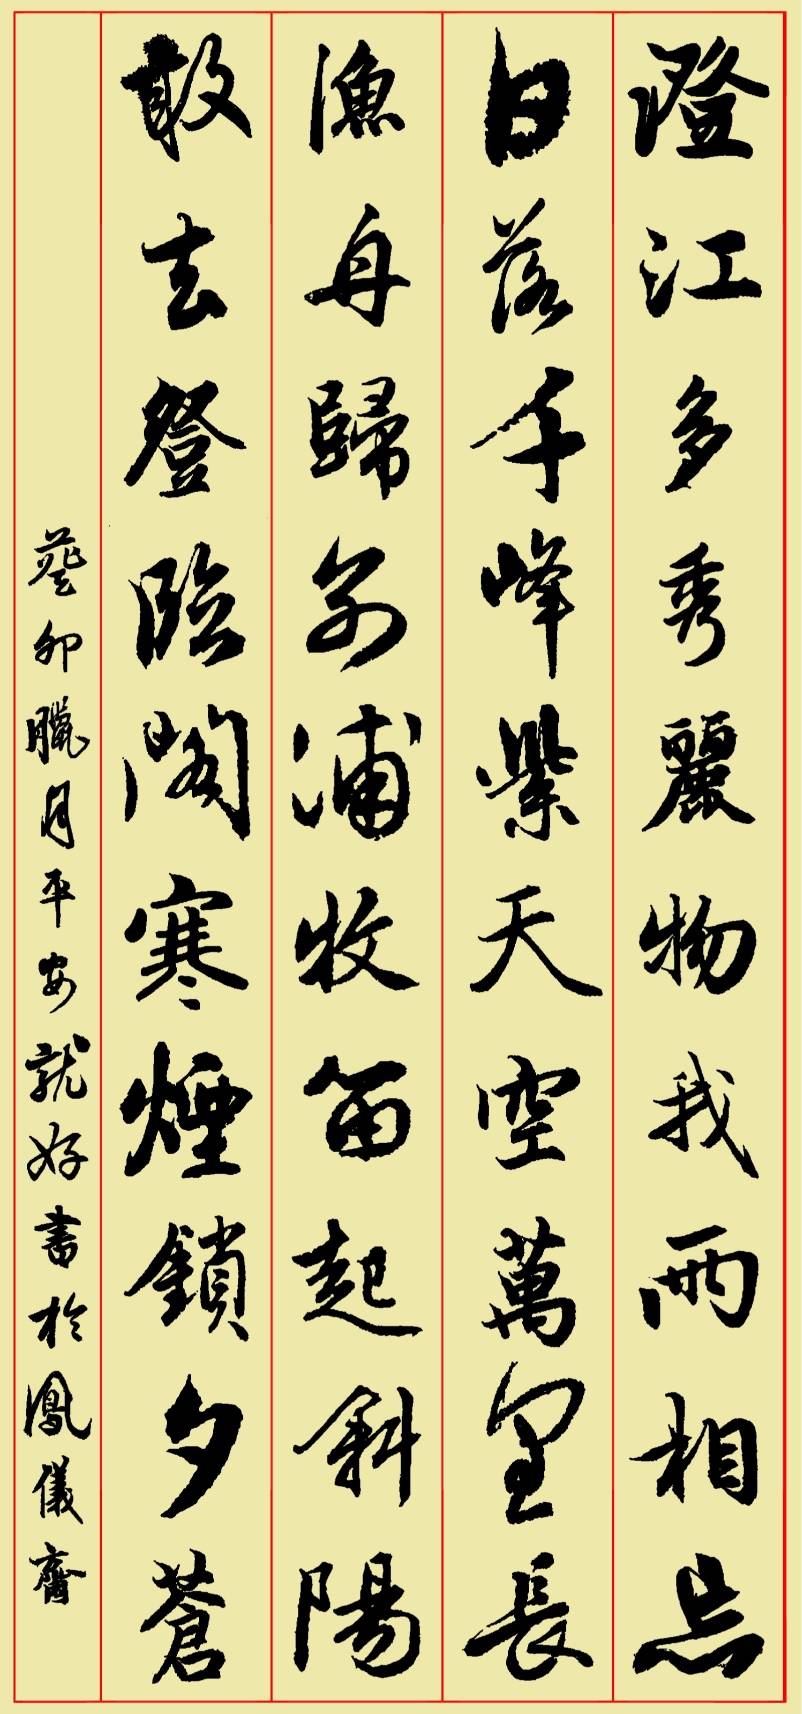 澄江多秀麗物我兩相忘
日落千峰紫天空萬里長
漁舟歸別浦牧笛起斜陽
敢去登臨閣寒煙鎖夕蒼
癸卯臘月平安就好書於鳳儀齋